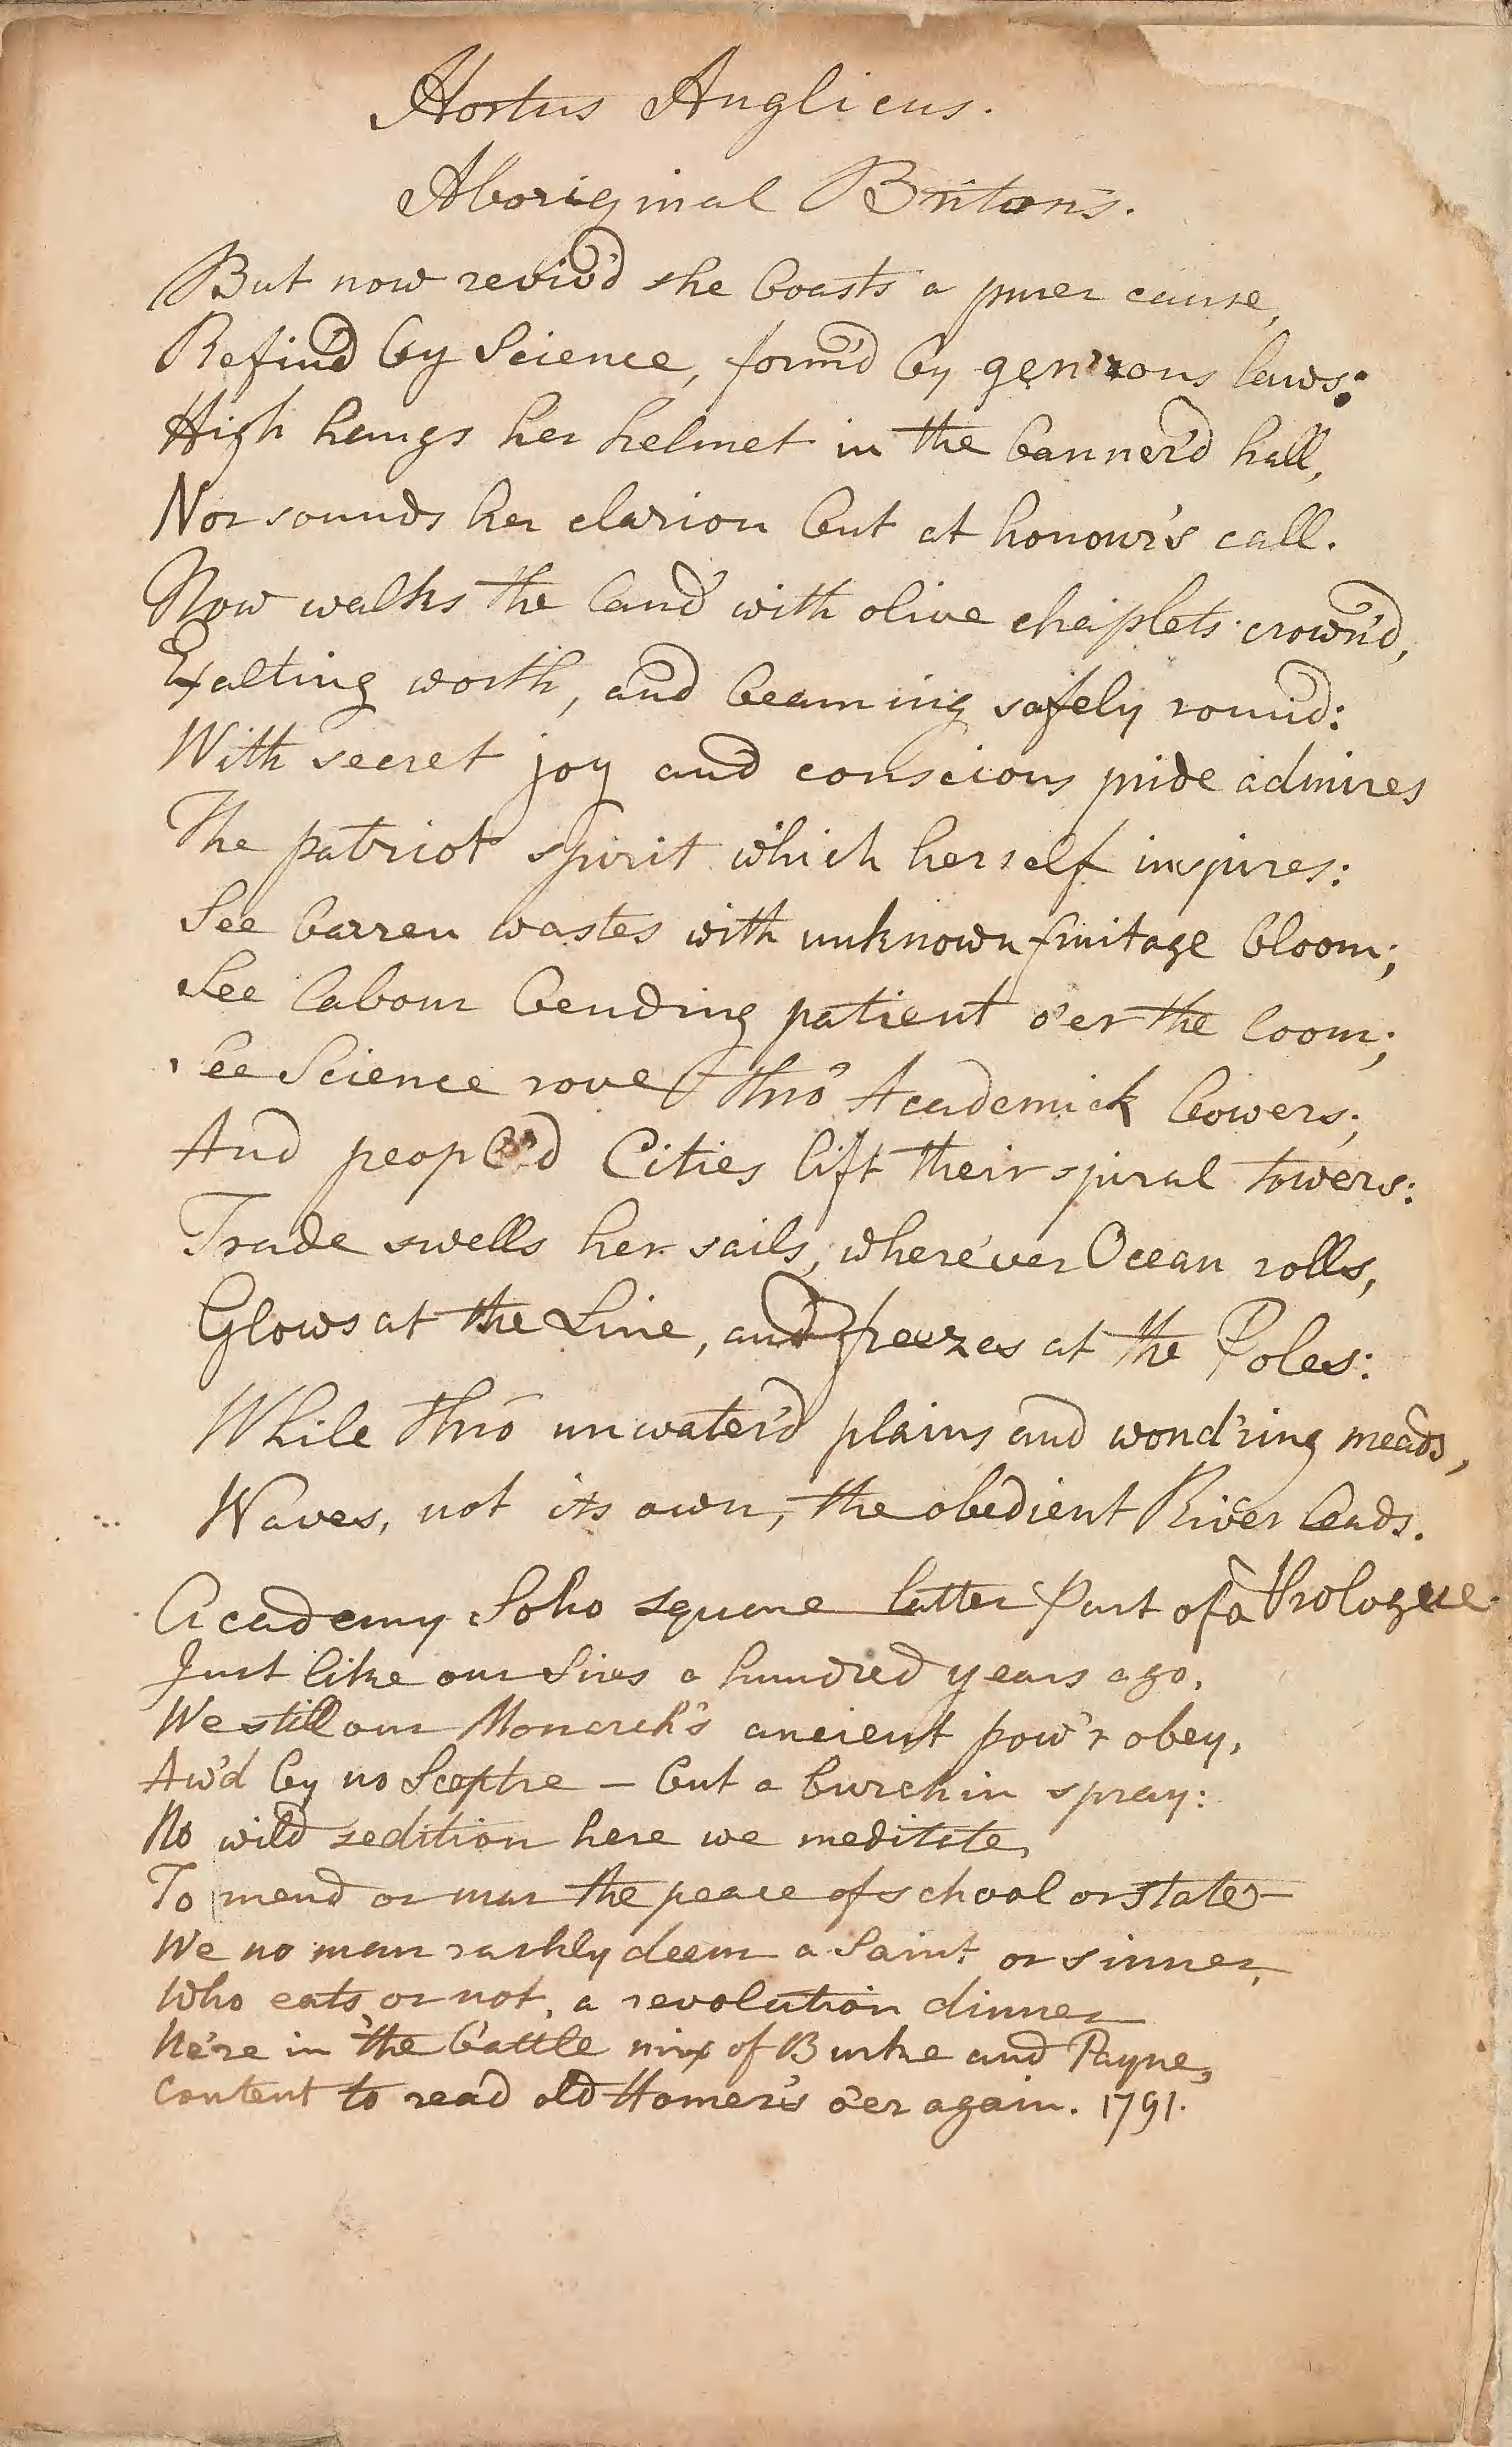 Hortus Anglicus.
Aboriginal Britons.
But now reviv'd she boasts a purer cause,
Refin'd by Science, form'd by gen'rous laws:
High hangs her helmet in the banner'd hall,
Nor sounds her clarion but at honour's call.
Now walks the land with olive chaplets crown'd,
Exalting worth, and beaming safely round:
With secret joy and conscious pride admires
The patriot spirit which herself inspires:
See barren wastes with unknown fruitage bloom;
See labour bending patient o'er the loom;
See Science rove thro' Academick bowers;
And peopl'd Cities lift their spiral towers:
Trade swells her sails, where'ver Ocean rolls,
Glows at the Line, and freezes at the Poles:
While thro' unwater'd plains and wond'ring meads,
Waves, not its own, the obedient River leads.
Academy Soho square latter Part of a Prologue.
Just like our Sires a hundred years ago,
We still our Monarch's ancient pow'r obey,
Aw'd by no Sceptre — but a burchin spray:
No wild sedition here we meditate,
To mend or mar the peace of school or state—
We no man rashly deem a Saint or sinner,
Who eats or not, a revolution dinner
Ne're in the battle mix of Burke and Payne,
Content to read old Homer's o'er again. 1791.